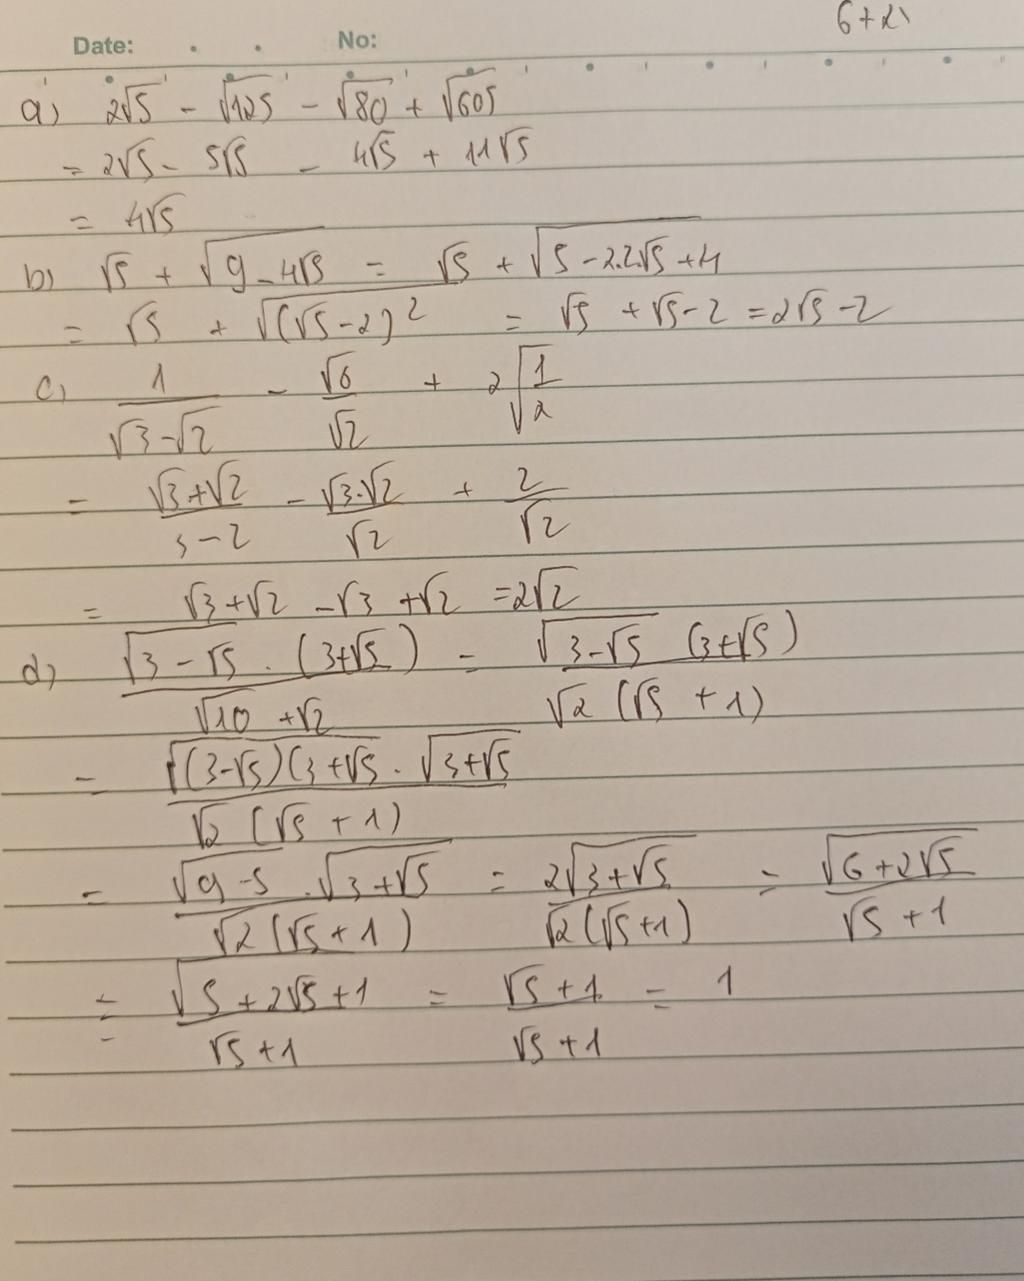 6+2
Date: . . No:
a) 2√5 - √125 - √80 + √605
= 2√5 - 5√5 - 4√5 + 11√5
= 4√5
b) √5 + √(9-4√5) = √5 + √(5-2.2√5+4)
= √5 + √((√5-2)²) = √5 + √5-2 = 2√5-2
c) 1/(√3-√2) - √6/√2 + 2√(1/2)
= (√3+√2)/(3-2) - (√3.√2)/√2 + 2/√2
= √3+√2 -√3 +√2 = 2√2
d) (√(3-√5) . (3+√5))/(√10+√2) = (√(3-√5) (3+√5))/(√2(√5+1))
= (√((3-√5)(3+√5) . √(3+√5))/(√2(√5+1))
= (√(9-5) . √(3+√5))/(√2(√5+1)) = (2√(3+√5))/(√2(√5+1)) = √(6+2√5)/(√5+1)
= √(5+2√5+1)/(√5+1) = (√5+1)/(√5+1) = 1